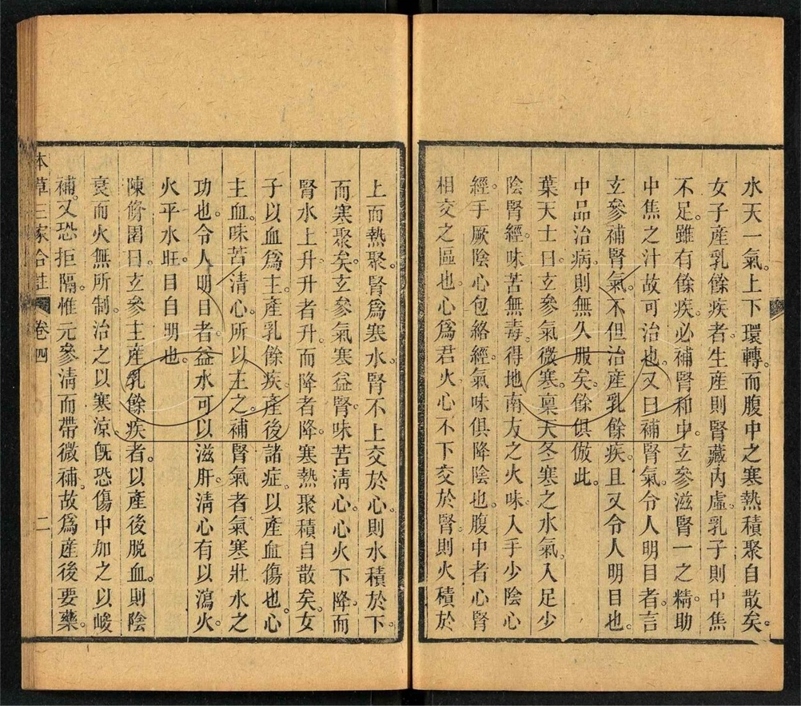 水天一氣。上下環轉。而腹中之寒熱積聚自散矣。
女子產乳餘疾者。生產則腎藏內虛。乳子則中焦
不足。雖有餘疾。必補腎和中。玄參滋腎一之精。助
中焦之汁。故可治也。又曰補腎氣。令人明目者。言
玄參補腎氣。不但治產乳餘疾。且又令人明目也。
中品治病。則無久服矣。餘俱倣此。
葉天士曰。玄參氣微寒。稟天冬寒之水氣。入足少
陰腎經。味苦無毒。得地南方之火味。入手少陰心
經。手厥陰心包絡經。氣味俱降。陰也。腹中者。心腎
相交之區也。心爲君火。心不下交於腎。則火積於
上而熱聚。腎爲寒水。腎不上交於心。則水積於下
而寒聚矣。玄參氣寒益腎。味苦清心。心火下降。而
腎水上升。升者升。而降者降。寒熱聚積自散矣。女
子以血爲主。產乳餘疾。產後諸症。以產血傷也。心
主血。味苦清心。所以主之。補腎氣者。氣寒壯水之
功也。令人明目者。益水可以滋肝。清心有以瀉火。
火平水旺。目自明也。
陳修園曰。玄參主產乳餘疾者。以產後脫血。則陰
衰而火無所制。治之以寒涼。旣恐傷中。加之以峻
補。又恐拒隔。惟元參清而帶微補。故爲產後要藥。
本草三家合註 卷四 二